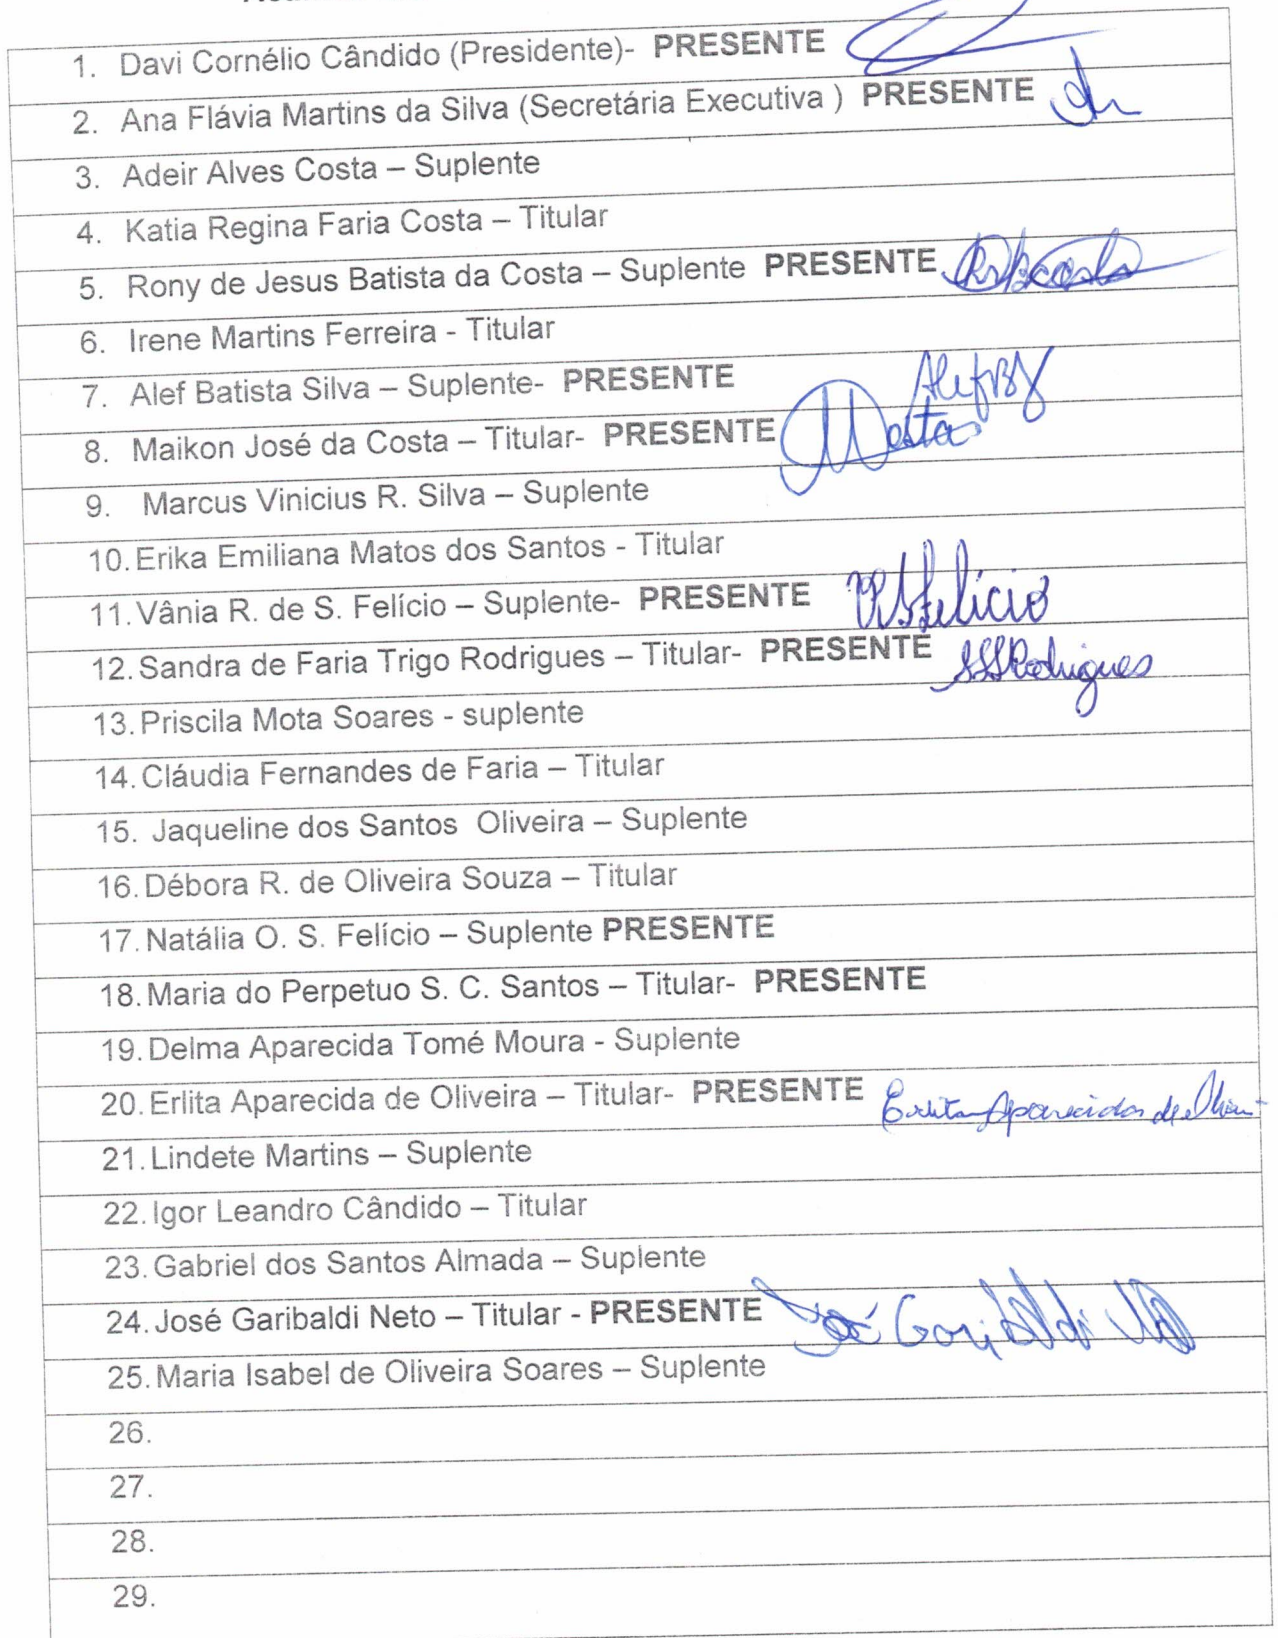 1. Davi Cornélio Cândido (Presidente)- PRESENTE
2. Ana Flávia Martins da Silva (Secretária Executiva ) PRESENTE
3. Adeir Alves Costa – Suplente
4. Katia Regina Faria Costa – Titular
5. Rony de Jesus Batista da Costa – Suplente PRESENTE
6. Irene Martins Ferreira - Titular
7. Alef Batista Silva – Suplente- PRESENTE
8. Maikon José da Costa – Titular- PRESENTE
9. Marcus Vinicius R. Silva – Suplente
10. Erika Emiliana Matos dos Santos - Titular
11. Vânia R. de S. Felício – Suplente- PRESENTE VRSFelício
12. Sandra de Faria Trigo Rodrigues – Titular- PRESENTE
13. Priscila Mota Soares - suplente
14. Cláudia Fernandes de Faria – Titular
15. Jaqueline dos Santos Oliveira – Suplente
16. Débora R. de Oliveira Souza – Titular
17. Natália O. S. Felício – Suplente PRESENTE
18. Maria do Perpetuo S. C. Santos – Titular- PRESENTE
19. Delma Aparecida Tomé Moura - Suplente
20. Erlita Aparecida de Oliveira – Titular- PRESENTE Erlita Aparecida de
21. Lindete Martins – Suplente
22. Igor Leandro Cândido – Titular
23. Gabriel dos Santos Almada – Suplente
24. José Garibaldi Neto – Titular - PRESENTE José Garibaldi
25. Maria Isabel de Oliveira Soares – Suplente
26.
27.
28.
29.